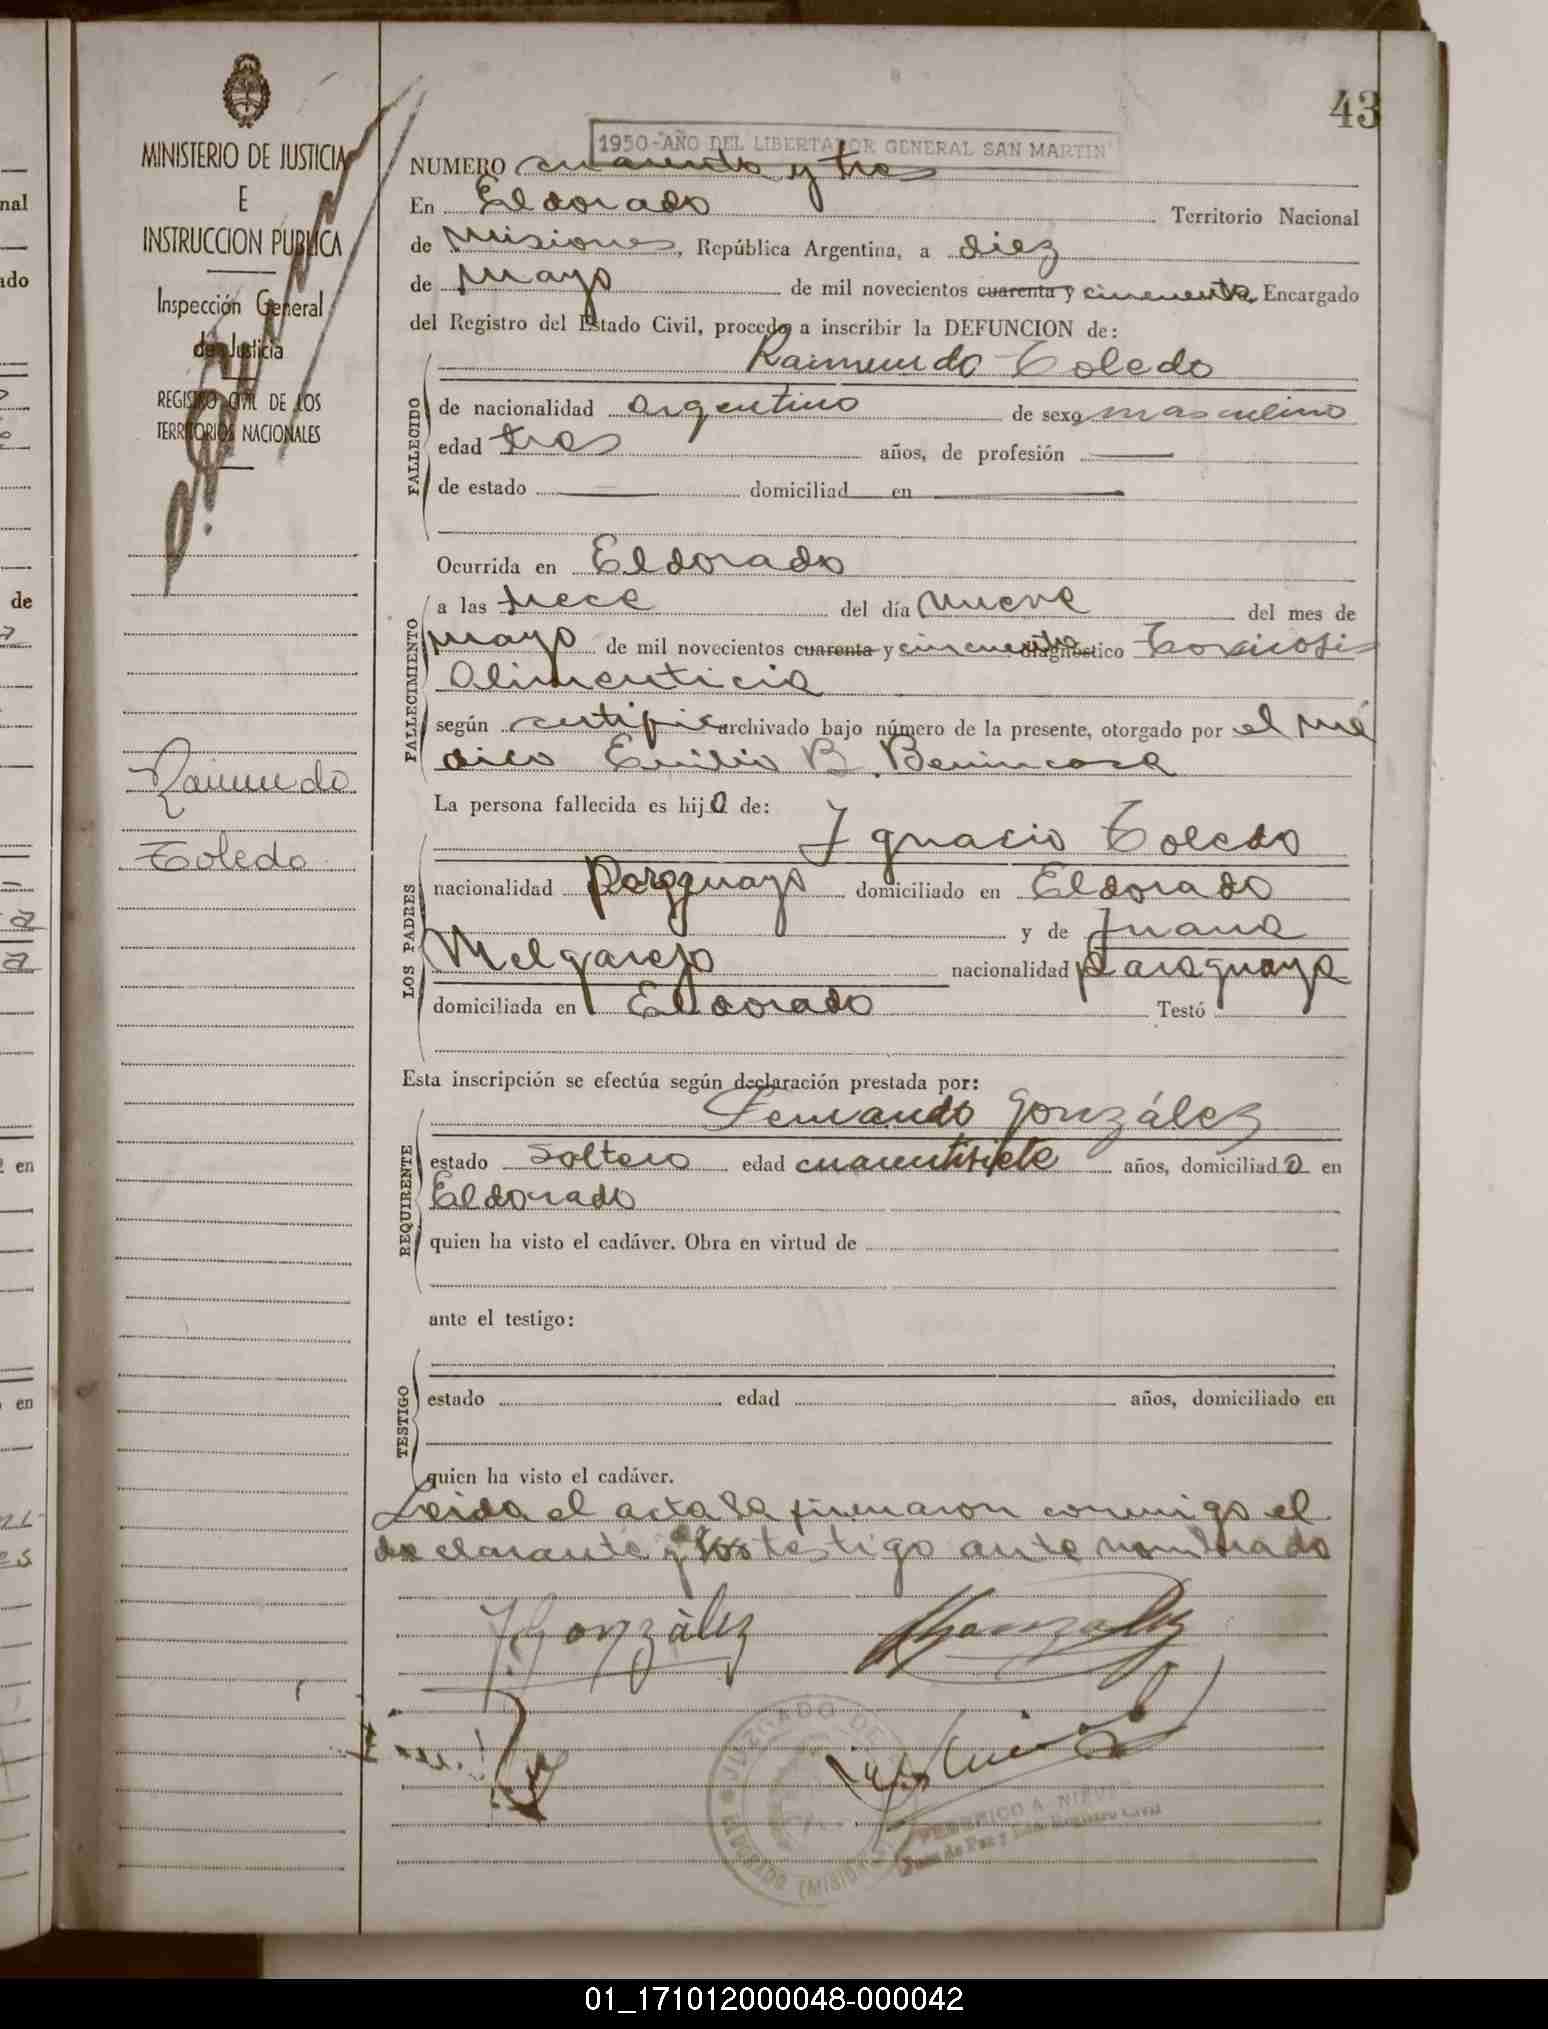 43
MINISTERIO DE JUSTICIA
E
INSTRUCCION PUBLICA
Inspección General
de Justicia
REGISTRO CIVIL DE LOS
TERRITORIOS NACIONALES
Raimundo
Toledo
1950-AÑO DEL LIBERTADOR GENERAL SAN MARTIN
NUMERO cuarenta y tres
En Eldorado Territorio Nacional
de Misiones, República Argentina, a diez
de Mayo de mil novecientos cuarenta y cincuenta Encargado
del Registro del Estado Civil, procedo a inscribir la DEFUNCION de:
Raimundo Toledo
FALLECIDO
de nacionalidad argentino de sexo masculino
edad tres años, de profesión
de estado domiciliad en
Ocurrida en Eldorado
FALLECIMIENTO
a las trece del día nueve del mes de
mayo de mil novecientos cuarenta y cincuenta diagnóstico Toxicosis
Alimenticia
según certific archivado bajo número de la presente, otorgado por el mé
dico Emilio B. Benincasa
La persona fallecida es hijo de:
LOS PADRES
Ignacio Toledo
nacionalidad Paraguayo domiciliado en Eldorado
y de Juana
Melgarejo nacionalidad Paraguaya
domiciliada en Eldorado Testó
Esta inscripción se efectúa según declaración prestada por:
REQUIRENTE
Fernando González
estado soltero edad cuarentisiete años, domiciliado en
Eldorado
quien ha visto el cadáver. Obra en virtud de
ante el testigo:
TESTIGO
estado edad años, domiciliado en
quien ha visto el cadáver.
Leida el acta la firmaron conmigo el
declarante y los testigo ante nombrado
F. González González
JUZGADO DE
ELDORADO (MISIONES)
FEDERICO A. NIEVES
Juez de Paz y Edo. Registro Civil
01_171012000048-000042